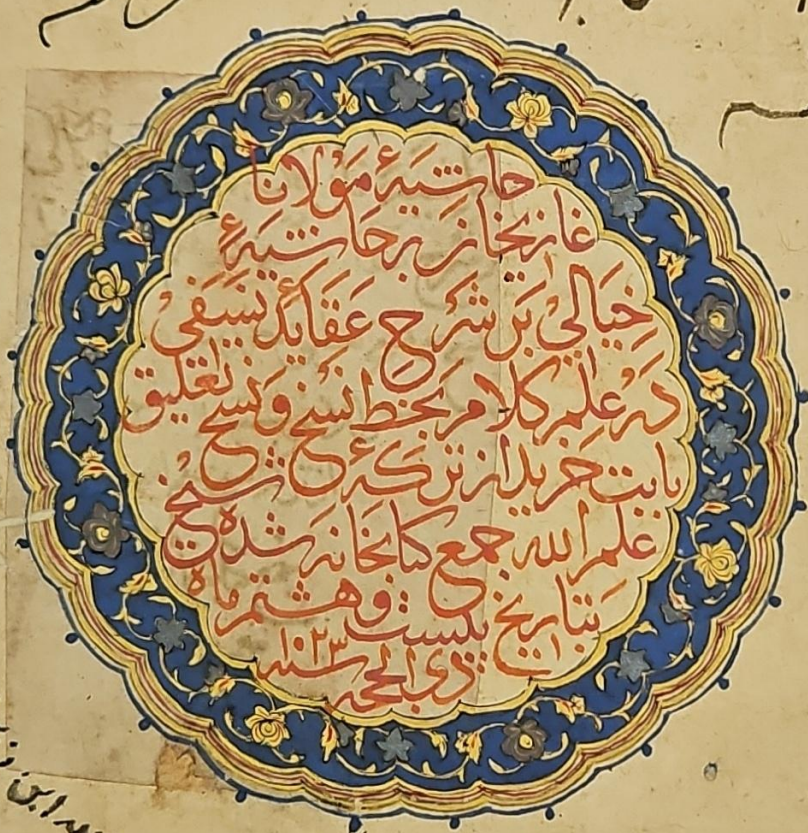 حاشیهٔ مولانا
غازیخان بر حاشیهٔ
خیالی بر شرح عقاید نسفی
در علم کلام بخط نسخ و نسخ تعلیق
بابت خرید از ترکهٔ شیخ
علم الله جمع کتابخانه شده
بتاریخ بیست و هشتم ماه
ذی الحجه سنه ۱۰۲۳